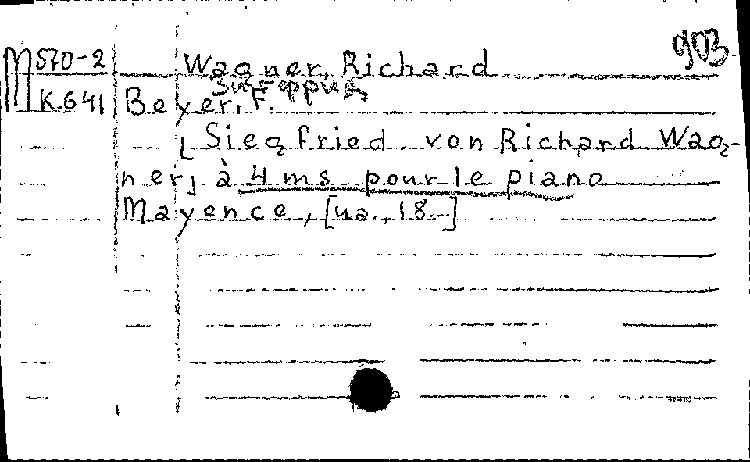 903
M 570-2 Wagner, Richard
K.641 Beyer, F.
[Siegfried von Richard Wag-
ner] à 4 ms pour le piano
Mayence, [ua., 18-]